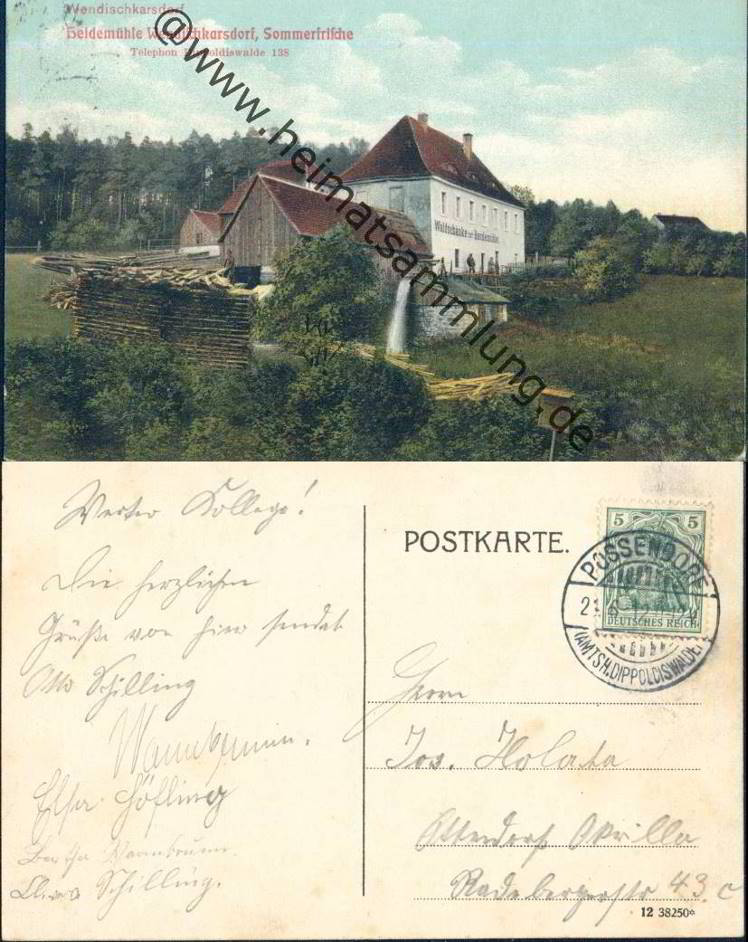 Wendischkarsdorf
Heidemühle Wendischkarsdorf, Sommerfrische
Telephon Dippoldiswalde 138
@www.heimatsammlung.de
Waldschänke zur Heidemühle
Werter Kollege!
Die herzlichen
Grüße von hier sendet
Otto Schilling
Warmbrunn.
Elsa Höfling
Bertha Warmbrunn.
Clara Schilling.
POSTKARTE.
5 5
DEUTSCHES REICH
POSSENDORF
(AMTSH. DIPPOLDISWALDE)
Herrn
Jos. Holata
Ottendorf Okrilla
Radebergerstr 43. c
12 38250*